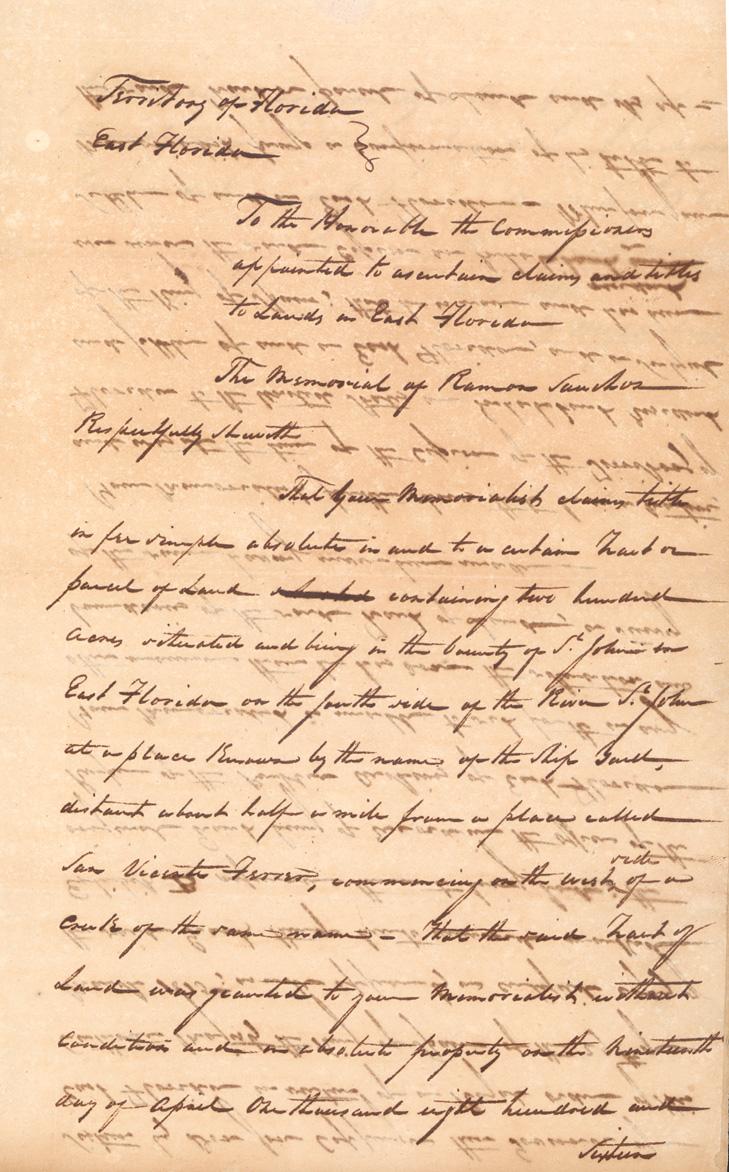 Territory of Florida
East Florida
To the Honorable the Commissioners
appointed to ascertain claims and titles
to Lands in East Florida
The Memorial of Ramon Sanchez
Respectfully sheweth
That your Memorialist claims title
in fee simple absolute in and to a certain Tract or
parcel of Land containing two hundred
acres situated and being in the County of St. Johns in
East Florida on the south side of the River St. John
at a place known by the name of the Ship Yard,
distant about half a mile from a place called
San Vicente Ferrer, commencing on the west side of a
creek of the same name - That the said Tract of
Land was granted to your Memorialist without
condition and in absolute property on the nineteenth
day of April One thousand eight hundred and
sixteen